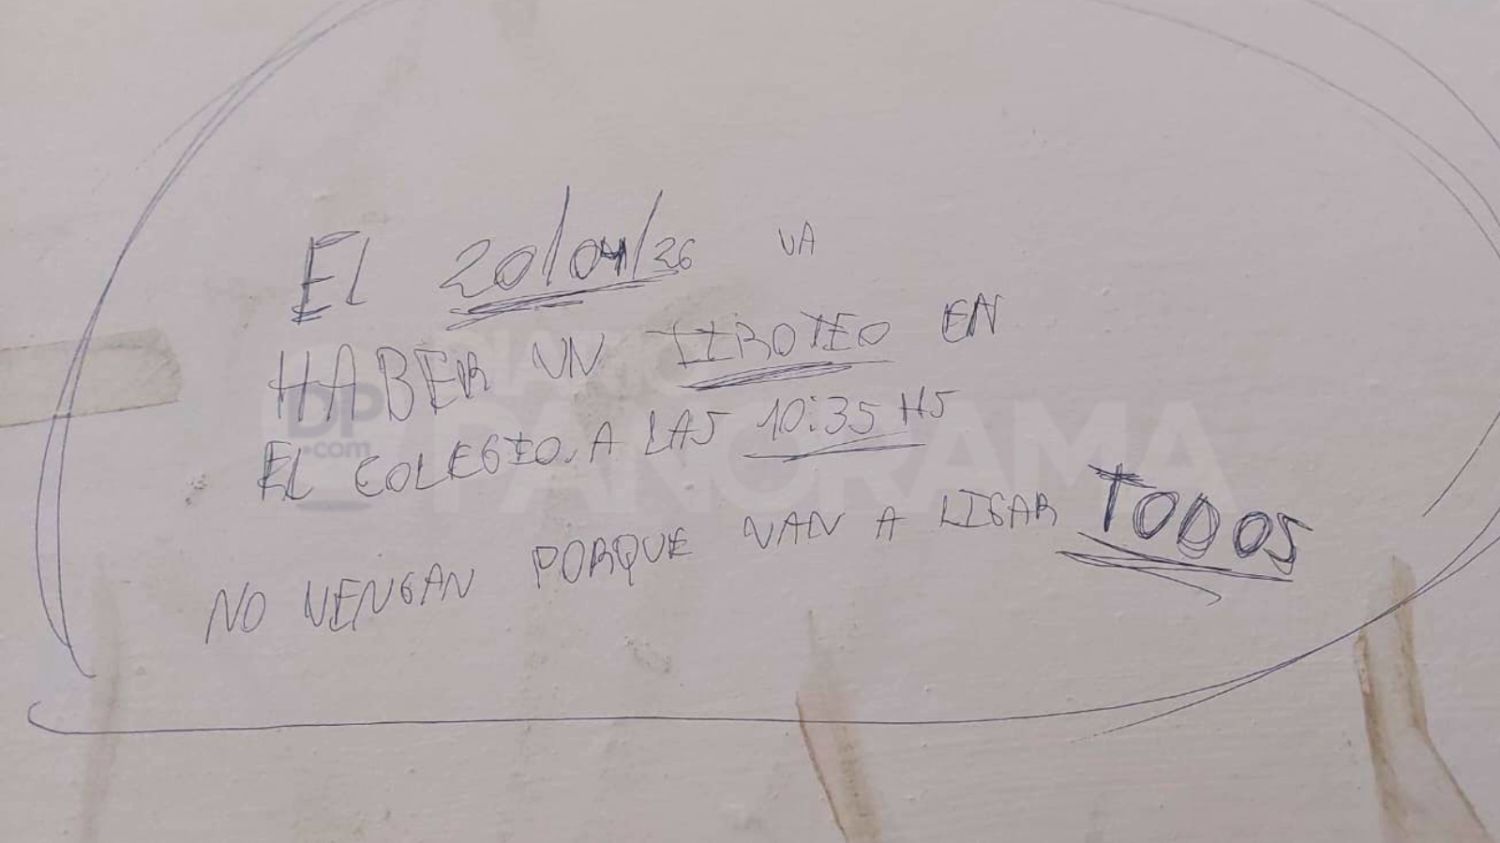 EL 20/04/26 VA
HABER UN TIROTEO EN
EL COLEGIO. A LAS 10:35 HS
NO VENGAN PORQUE VAN A LIGAR TODOS
DIARIO
DP
.com
PANORAMA